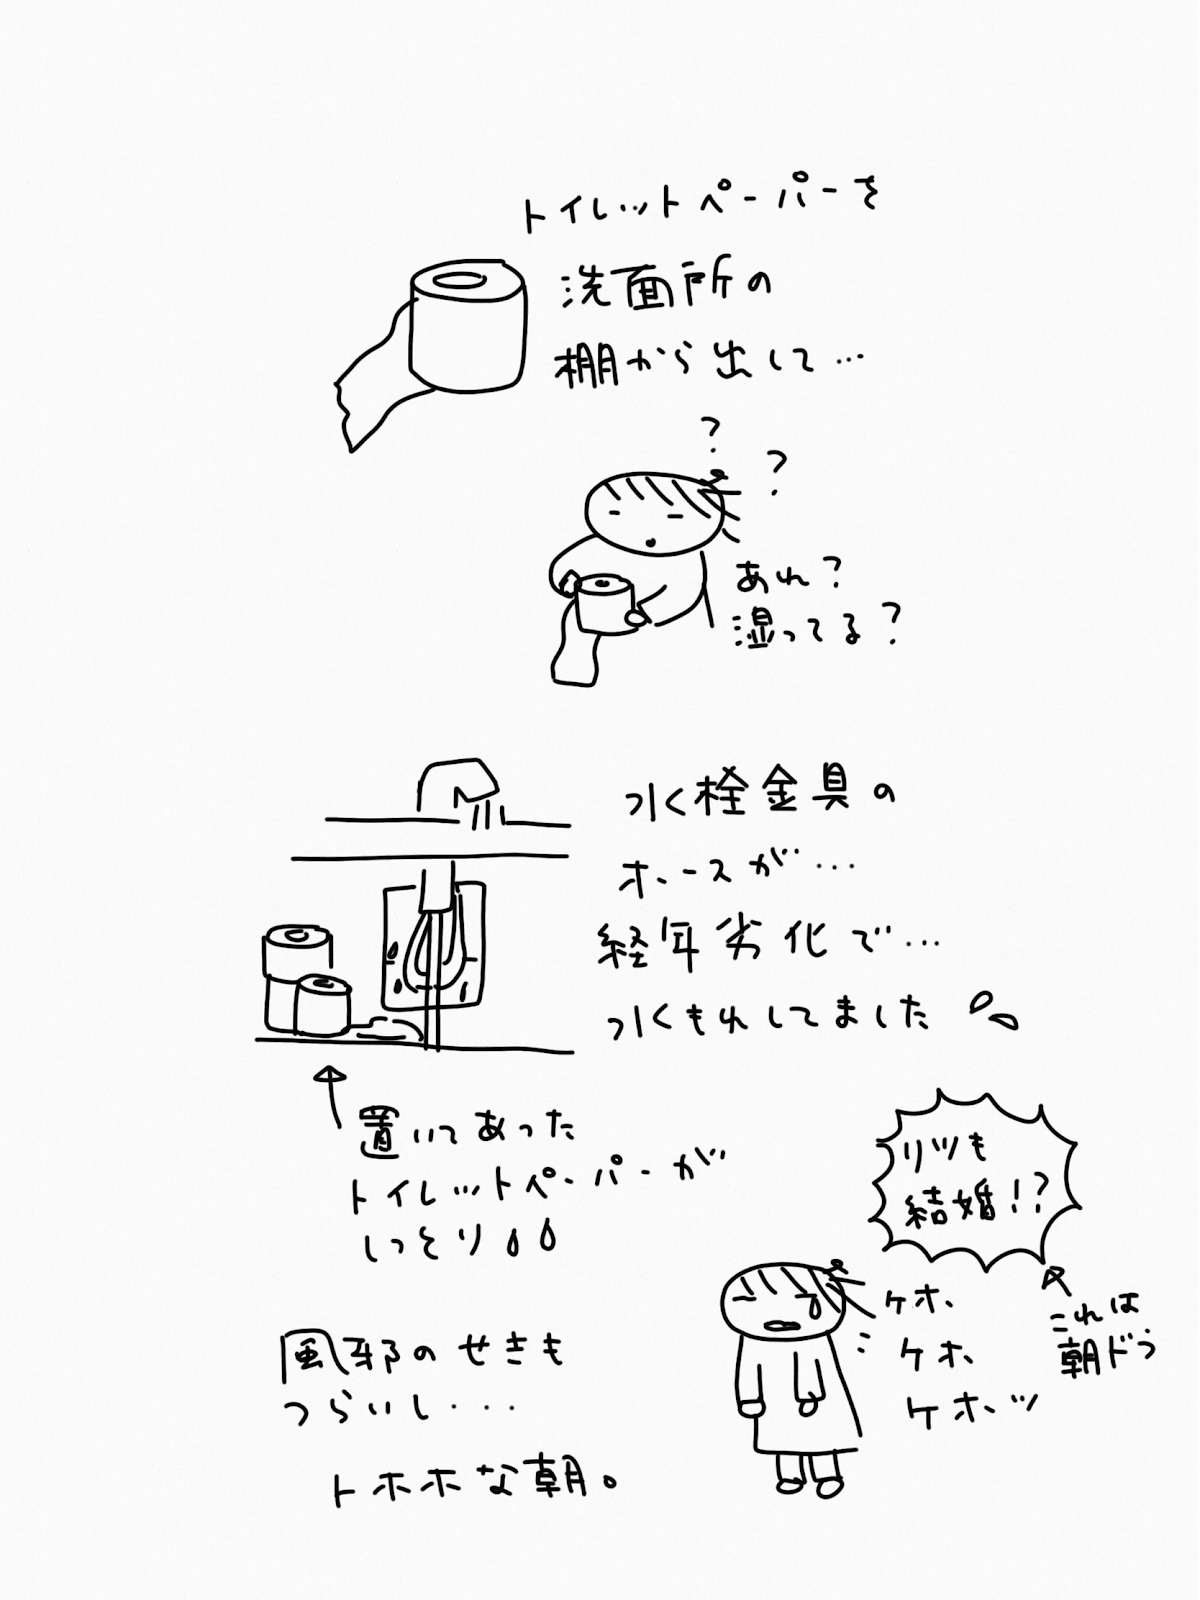 トイレットペーパーを
洗面所の
棚から出して…
?
?
あれ?
湿ってる?
水栓金具の
ホースが…
経年劣化で…
水もれしてました
置いてあった
トイレットペーパーが
しっとり
リツも
結婚!?
これは
朝ドラ
ケホ、
ケホ、
ケホッ
風邪のせきも
つらいし...
トホホな朝。